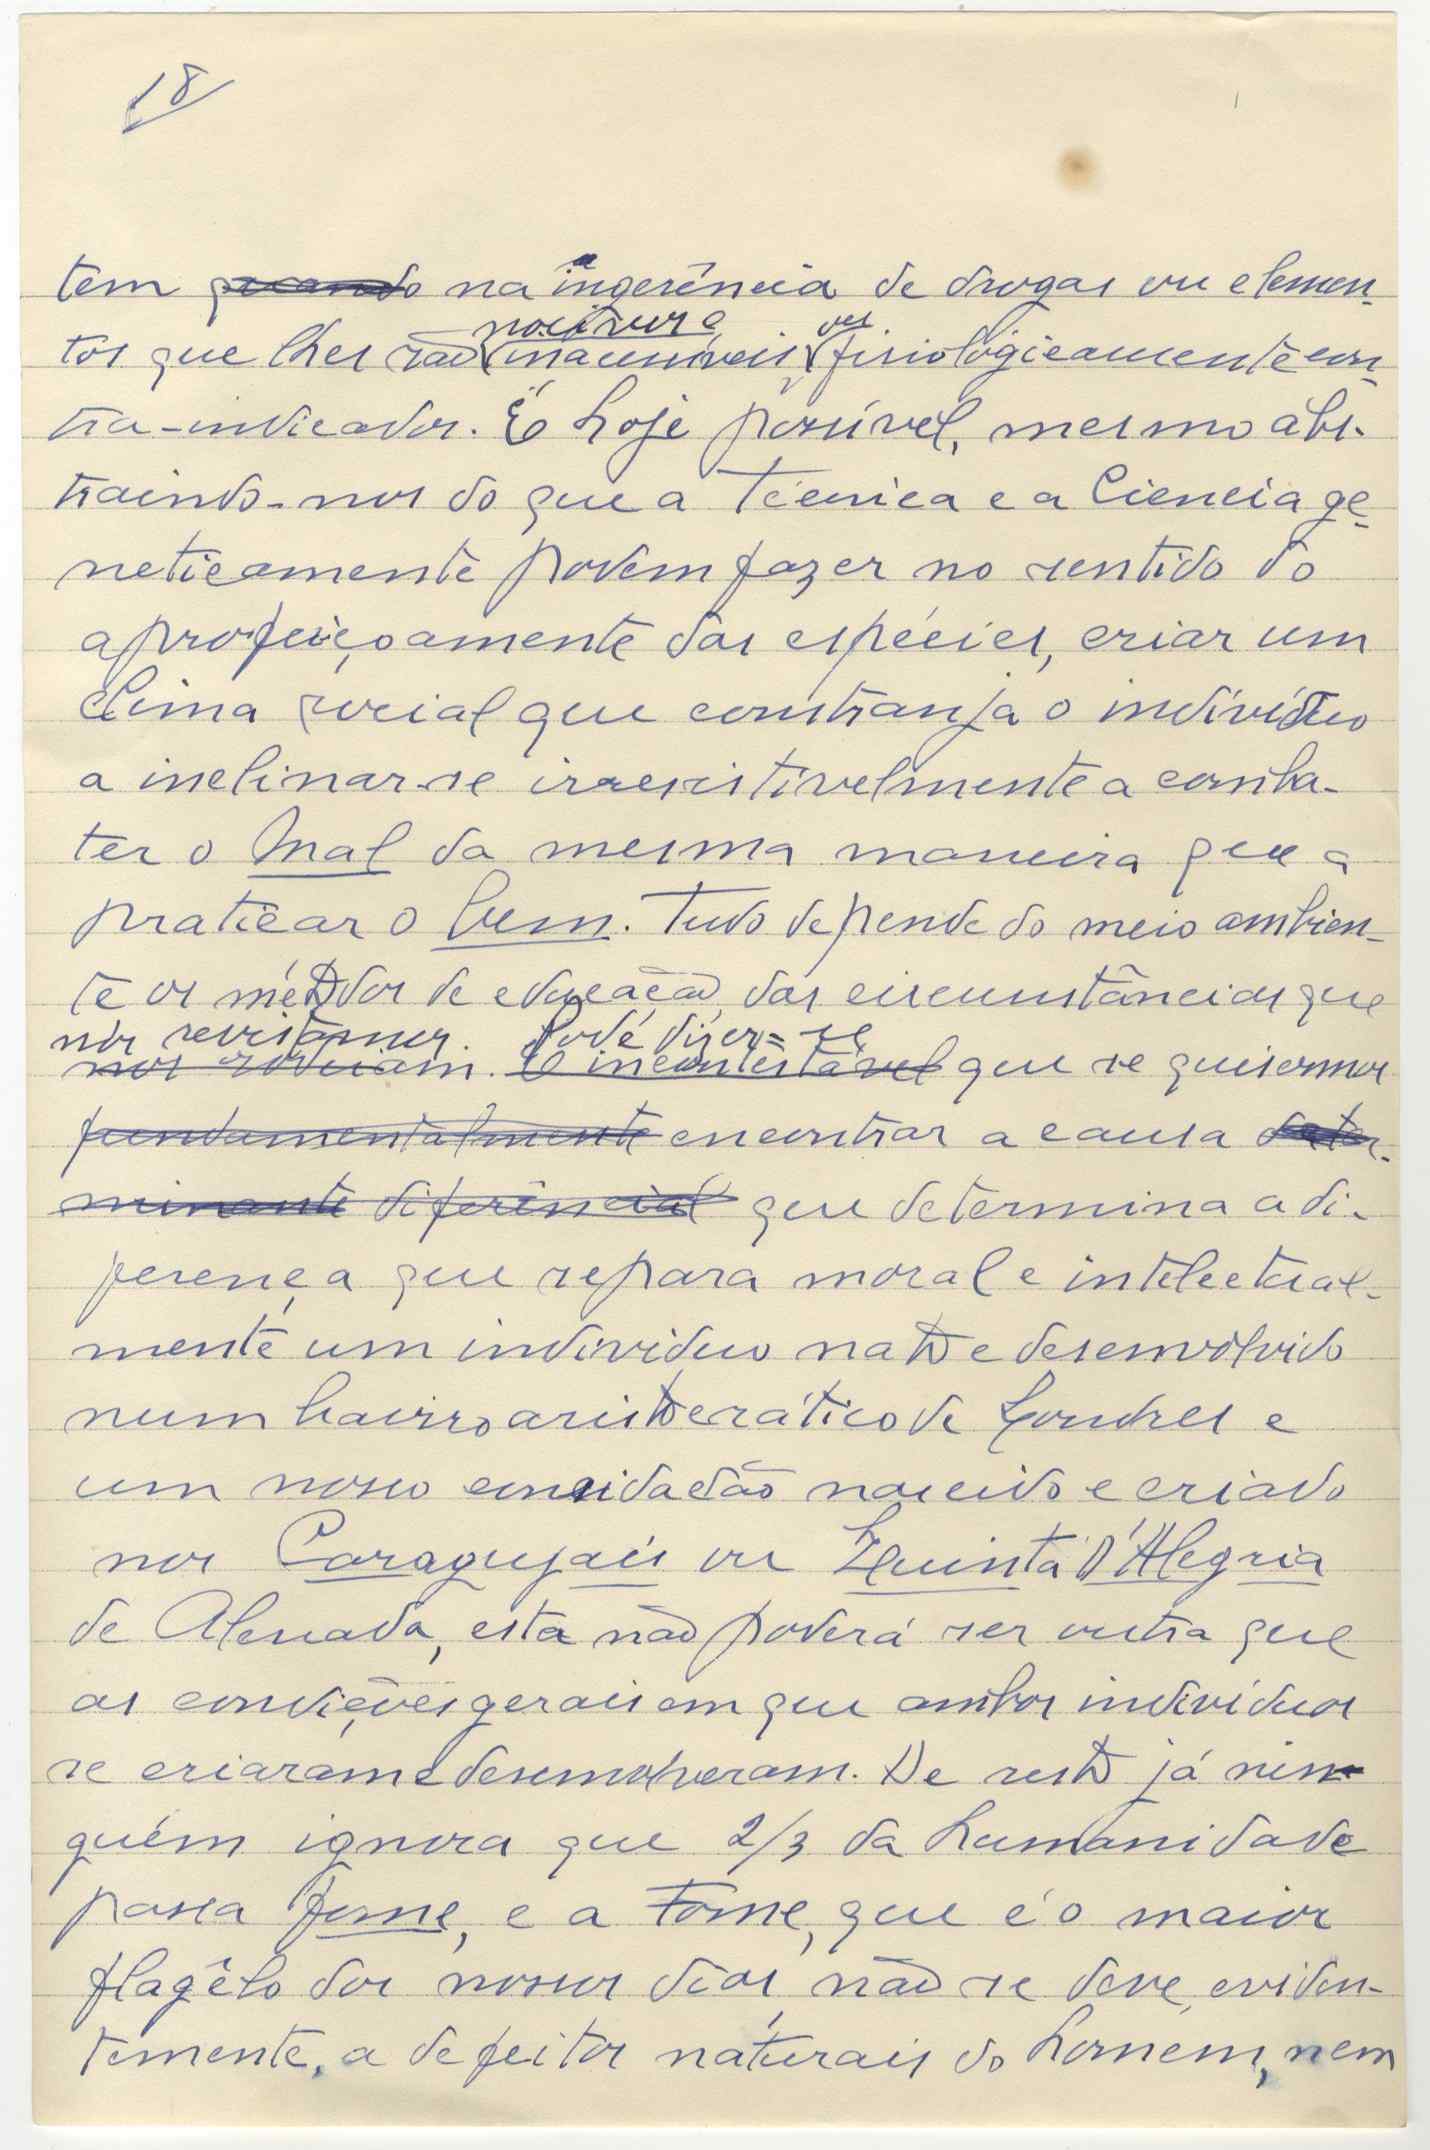 18
tem quando na ingerência de drogas ou elemen-
nocivos e ou
tos que lhes são inacessíveis, fisiològicamente con-
tra-indicados. É hoje possível, mesmo abs-
traindo-nos do que a Técnica e a Ciencia ge-
neticamente podem fazer no sentido do
aprofeiçoamente das espécies, criar um
clima social que constranja o indivíduo
a inclinar-se irresistivelmente a comba-
ter o Mal da mesma maneira que a
praticar o bem. Tudo depende do meio ambien-
te os métodos de educação, das circunstâncias que
nós revistamos. Pode dizer-se
nos rodeiam. É incontestável que se quisermos
fundamentalmente encontrar a causa deter-
minante diferêncial que determina a di-
ferença que separa moral e intelectual-
mente um individuo nato e desenvolvido
num bairro aristocrático de Londres e
um nosso concidadão nascido e criado
nos Caraguejais ou Quinta D'Alegria
de Almada, esta não poderá ser outra que
as condições gerais em que ambos indivíduos
se criaram e desenvolveram. De resto já nin-
guém ignora que 2/3 da humanidade
passa fome, e a Fome, que é o maior
flagêlo dos nossos dias, não se deve, eviden-
temente, a defeitos naturais do homem, nem